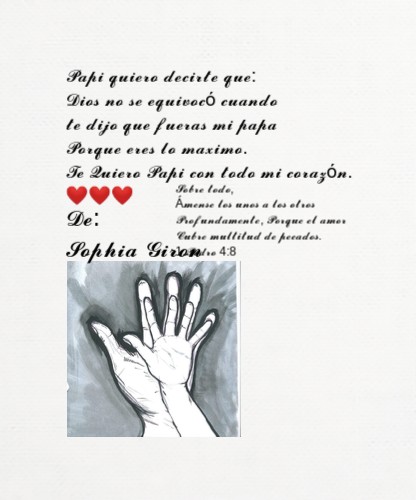 Papi quiero decirte que:
Dios no se equivocó cuando
te dijo que fueras mi papa
Porque eres lo maximo.
Te Quiero Papi con todo mi corazón.
❤️❤️❤️
De:
Sophia Giron
Sobre todo,
Ámense los unos a los otros
Profundamente, Porque el amor
Cubre multitud de pecados.
1 Pedro 4:8